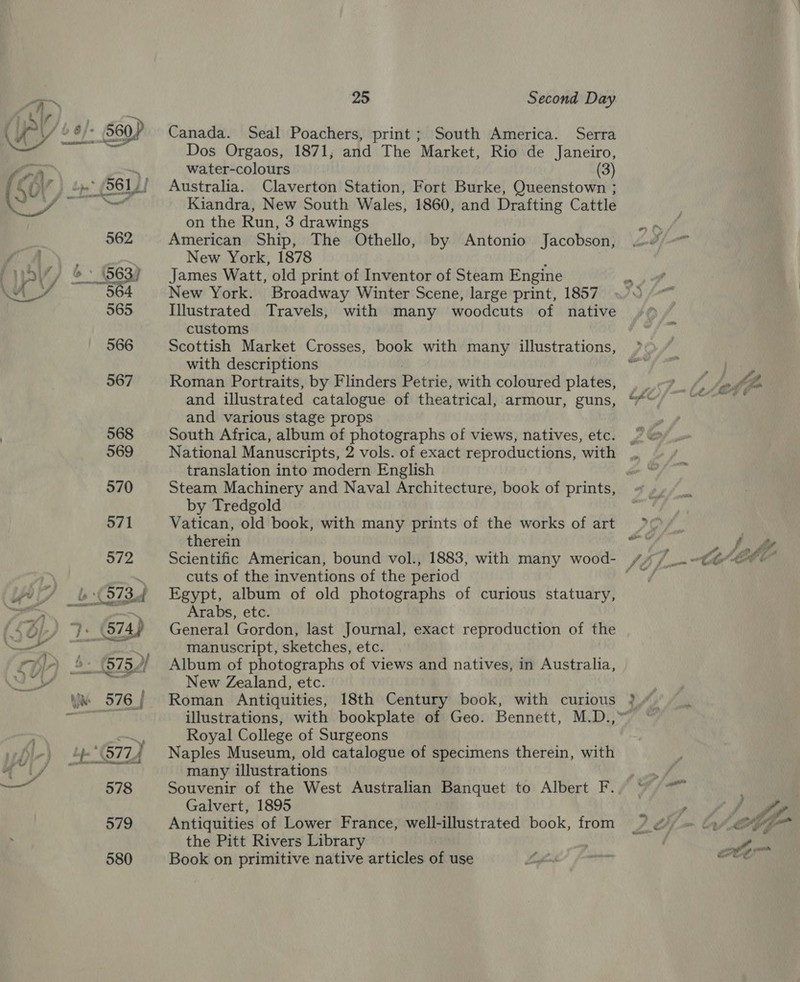 25 Second Day
6/- 560 Canada. Seal Poachers, print; South America. Serra
Dos Orgaos, 1871, and The Market, Rio de Janeiro,
water-colours (3)
561 Australia. Claverton Station, Fort Burke, Queenstown;
Kiandra, New South Wales, 1860, and Drafting Cattle
on the Run, 3 drawings
562 American Ship, The Othello, by Antonio Jacobson,
New York, 1878
563 James Watt, old print of Inventor of Steam Engine
564 New York. Broadway Winter Scene, large print, 1857
565 Illustrated Travels, with many woodcuts of native
customs
566 Scottish Market Crosses, book with many illustrations,
with descriptions
567 Roman Portraits, by Flinders Petrie, with coloured plates,
and illustrated catalogue of theatrical, armour, guns,
and various stage props
568 South Africa, album of photographs of views, natives, etc.
569 National Manuscripts, 2 vols. of exact reproductions, with
translation into modern English
570 Steam Machinery and Naval Architecture, book of prints,
by Tredgold
571 Vatican, old book, with many prints of the works of art
therein
572 Scientific American, bound vol., 1883, with many wood-
cuts of the inventions of the period
573 Egypt, album of old photographs of curious statuary,
Arabs, etc.
574 General Gordon, last Journal, exact reproduction of the
manuscript, sketches, etc.
575 Album of photographs of views and natives, in Australia,
New Zealand, etc.
576 Roman Antiquities, 18th Century book, with curious
illustrations, with bookplate of Geo. Bennett, M.D.,
Royal College of Surgeons
577 Naples Museum, old catalogue of specimens therein, with
many illustrations
578 Souvenir of the West Australian Banquet to Albert F.
Galvert, 1895
579 Antiquities of Lower France, well-illustrated book, from
the Pitt Rivers Library
580 Book on primitive native articles of use